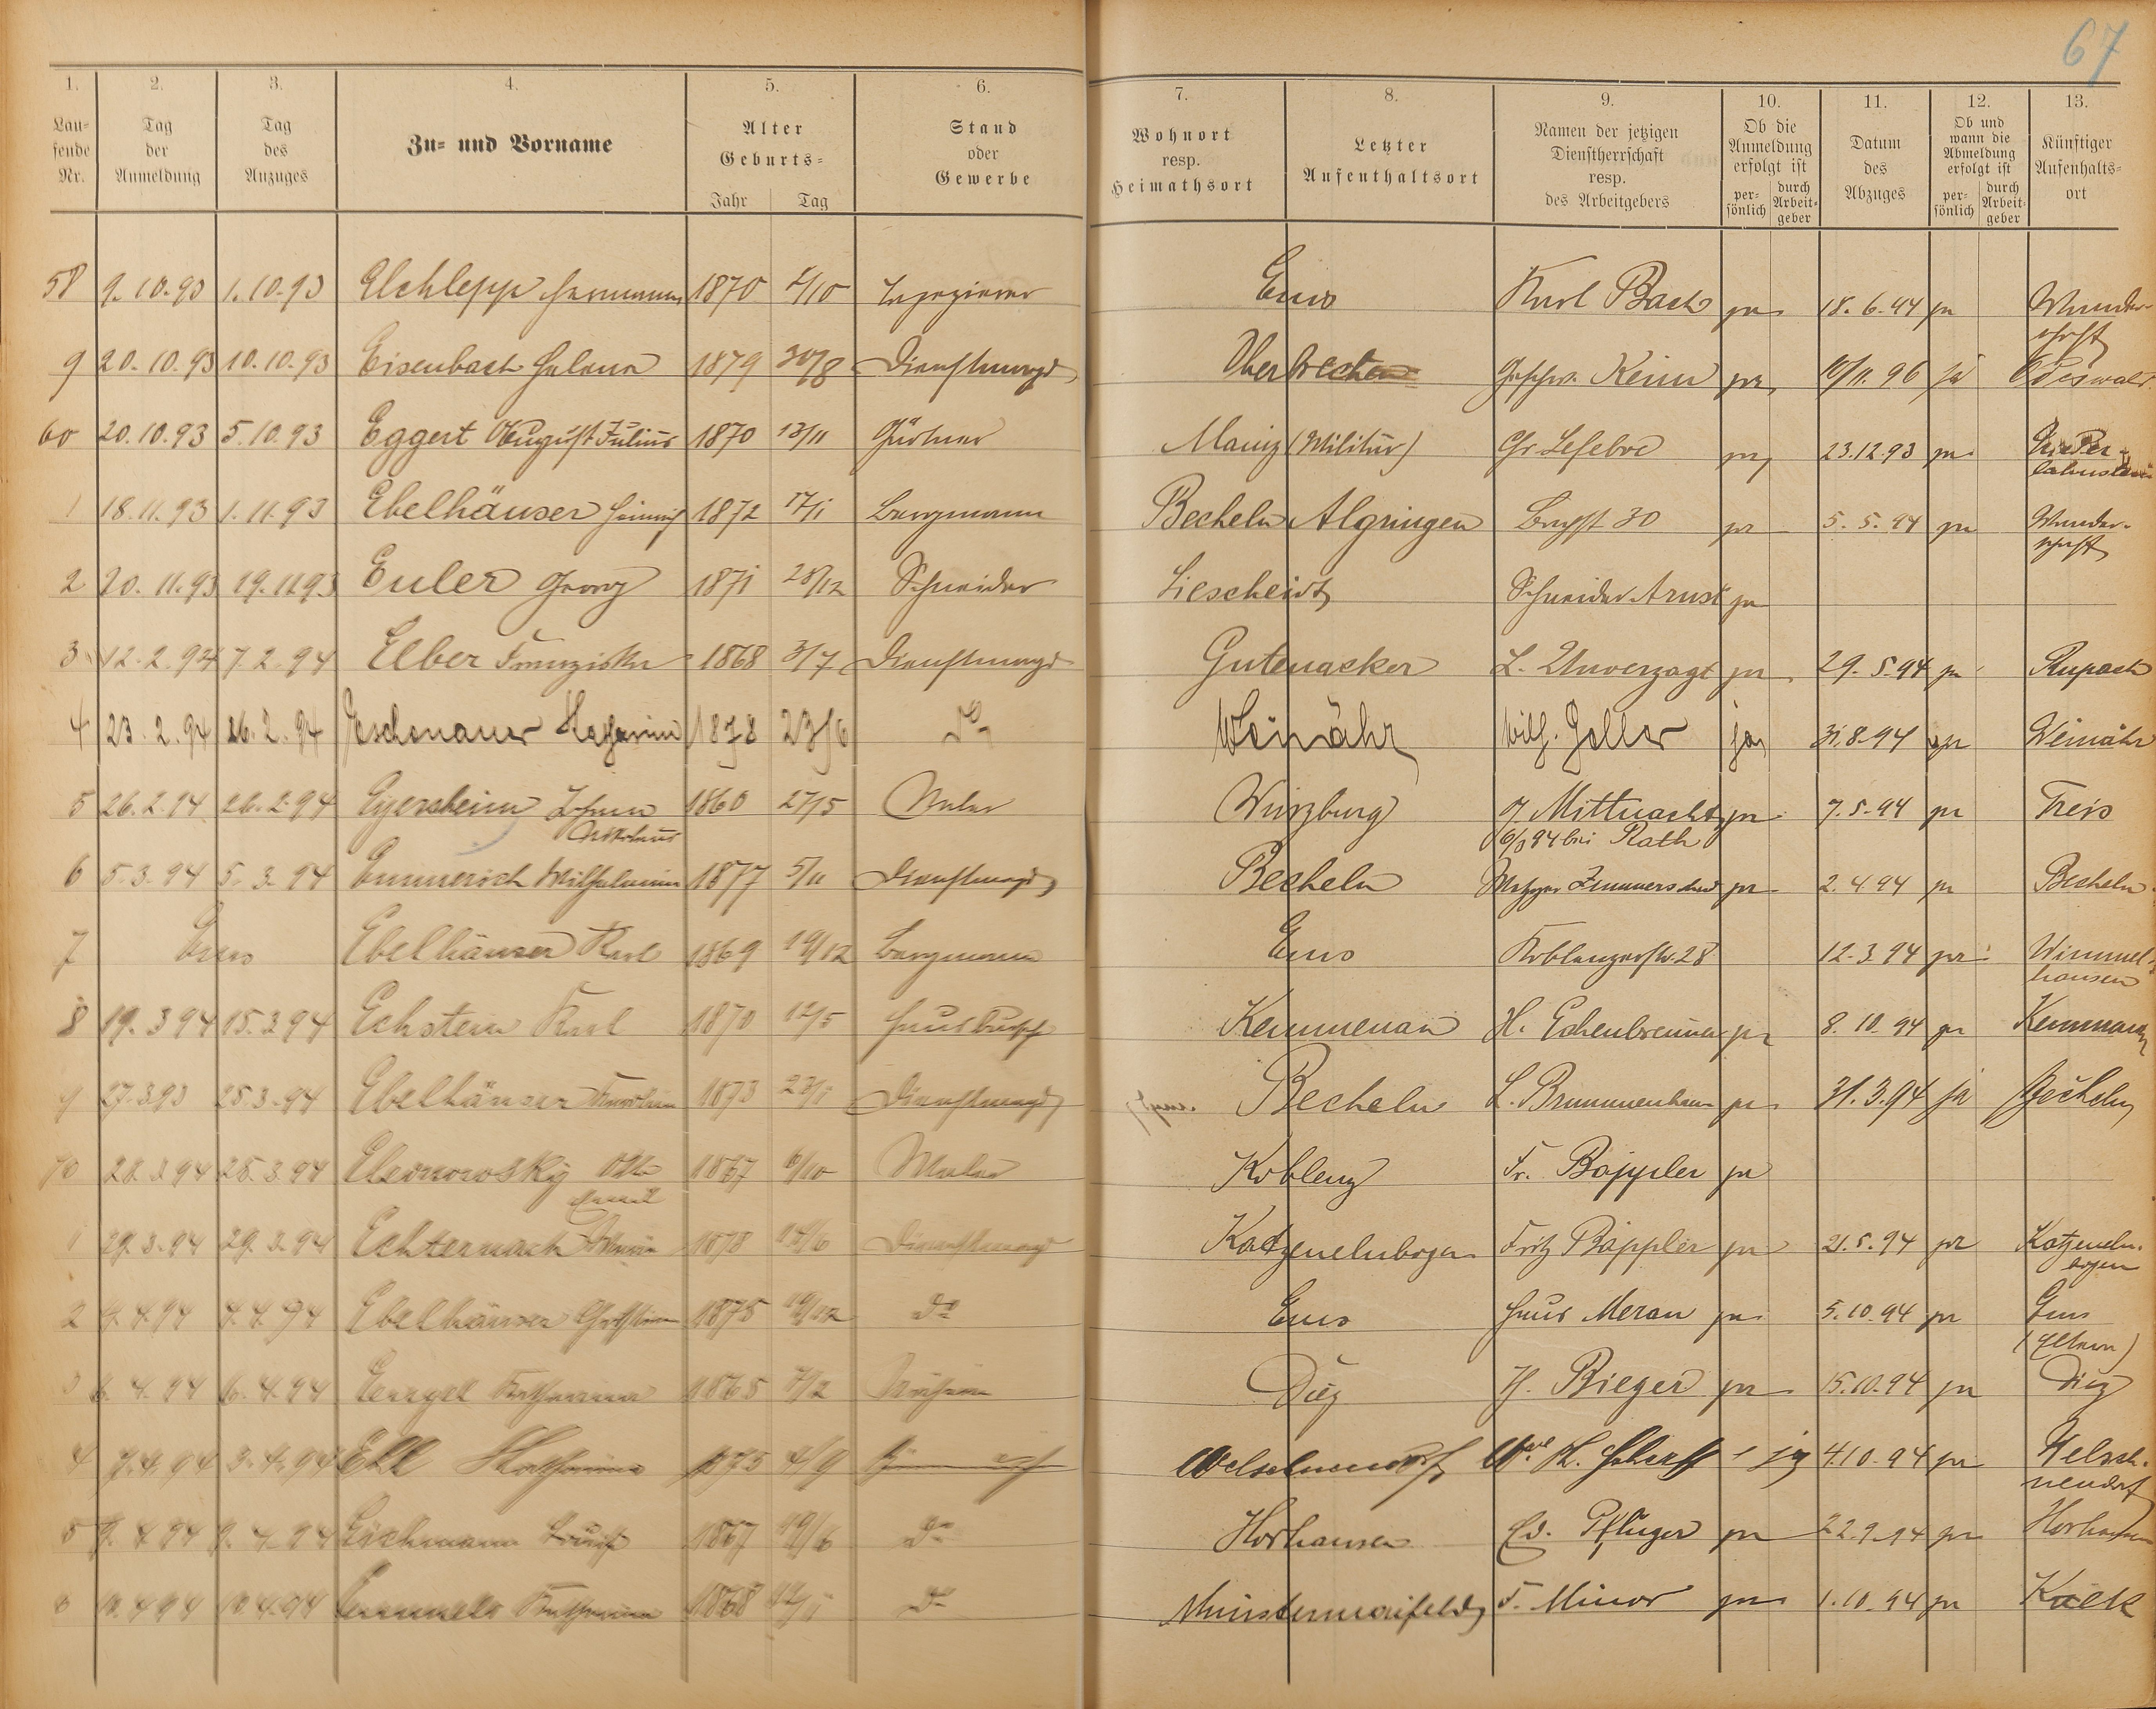 67
1. 2. 3. 4. 5. 6. 7. 8. 9. 10. 11. 12. 13.
Lau=
fende
Nr.
Tag
der
Anmeldung
Tag
des
Anzuges
Zu= und Vorname
Alter
Geburts=
Jahr Tag
Stand
oder
Gewerbe
Wohnort
resp.
Heimathsort
Letzter
Aufenthaltsort
Namen der jetzigen
Dienstherrschaft
resp.
des Arbeitgebers
Ob die
Anmeldung
erfolgt ist
per=
sönlich
durch
Arbeit=
geber
Datum
des
Abzuges
Ob und
wann die
Abmeldung
erfolgt ist
per=
sönlich
durch
Arbeit=
geber
Künftiger
Aufenhalts=
ort
58 9.10.93 1.10.93 Elchlepp Hermann 1870 2/10 Tapezierer Ems Karl Bach ja 18.6.94 ja Wander-
schaft
9 20.10.93 10.10.93 Eisenbach Helena 1879 30/8 Dienstmagd Oberbrechen Geschw. Keim ja 10/11.96 ja
60 20.10.93 5.10.93 Eggert August Julius 1870 13/11 Gärtner Mainz (Militär) Chr Lefebre ja 23.12.93 ja Nieder-
lahnstein
1 18.11.93 1.11.93 Ebelhäuser Heinrich 1872 17/1 Bergmann Becheln Algringen 30 ja 5.5.94 ja Wander-
schaft
2 20.11.93 19.11.93 Euler Georg 1871 28/12 Schneider Liescheid Schneider Arnst ja
3 12.2.94 7.2.94 Elber Franziska 1868 3/7 Dienstmagd Gutenacker L. Unverzagt ja 29.5.94 ja Rupach
4 23.2.94 26.2.94 Eschenauer Katharina 1878 23/6 do Weinähr Wilh. Goller ja 31.8.94 ja Weinähr
5 26.2.94 26.2.94 Eyersheim Johann 1860 27/5 Maler Würzburg J. Mittnacht ja 7.5.94 ja Treis
Nikolaus 94 bei Rath
6 5.3.94 5.3.94 Emmerich Wilhelmine 1877 5/11 Dienstmagd Becheln Metzger Zimmerschied ja 2.4.94 ja Becheln
7 Ems Ebelhäuser Karl 1869 19/12 Bergmann Ems Koblenzerstr. 28 12.3.94 ja Wimmel-
hausen
8 19.3.94 15.3.94 Echstein Karl 1870 12/5 Hausbursche Kemmenau H. Eckenbrenner ja 8.10.94 ja Kemmenau
9 27.3.93 25.3.94 Ebelhäuser Karoline 1873 23/1 Dienstmagd Becheln L. Brummenhaus ja 31.3.94 ja Becheln
70 28.3.94 28.3.94 Eleonorosky Otto 1867 6/10 Maler Koblenz Fr. Bäppler ja
Emil
1 29.3.94 29.3.94 Echternach Maria 1878 15/6 Dienstmagd Katzenelnbogen Fritz Bäppler ja 21.5.94 ja Katzeneln-
bogen
2 4.4.94 4.4.94 Ebelhäuser Christine 1875 19/12 do Ems Haus Meran ja 5.10.94 ja Ems
(Eltern)
3 6.4.94 6.4.94 Engel Katharina 1865 7/2 Köchin Diez H. Bieger ja 15.10.94 ja Diez
4 7.4.94 3.4.94 Ehl Katharina 1875 4/9 Welschneudorf Wwe H. Scharff ja 4.10.94 ja Welsch-
neudorf
5 9.4.94 9.4.94 Eichmann Louise 1867 19/6 do Horhausen Ed. Pflüger ja 22.9.94 ja Horhausen
6 10.4.94 10.4.94 Emmels Katharina 1868 12/11 do Münstermaifeld F. Minor ja 1.10.94 ja Kalk